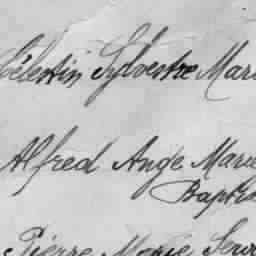 Célestin Sylvestre Mari
Alfred Ange Marie
Baptis
Pierre Marie